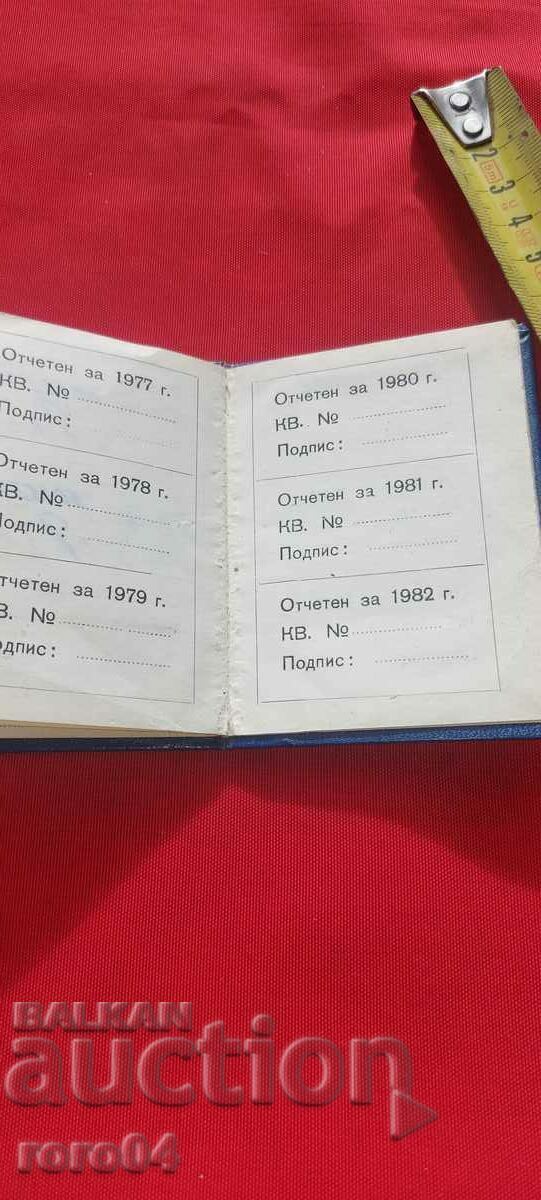 Отчетен за 1977 г.
КВ. №
Подпис:
Отчетен за 1978 г.
КВ. №
Подпис:
Отчетен за 1979 г.
КВ. №
Подпис:
Отчетен за 1980 г.
КВ. №
Подпис:
Отчетен за 1981 г.
КВ. №
Подпис:
Отчетен за 1982 г.
КВ. №
Подпис:
2 3 4 5
BALKAN
auction
roro04